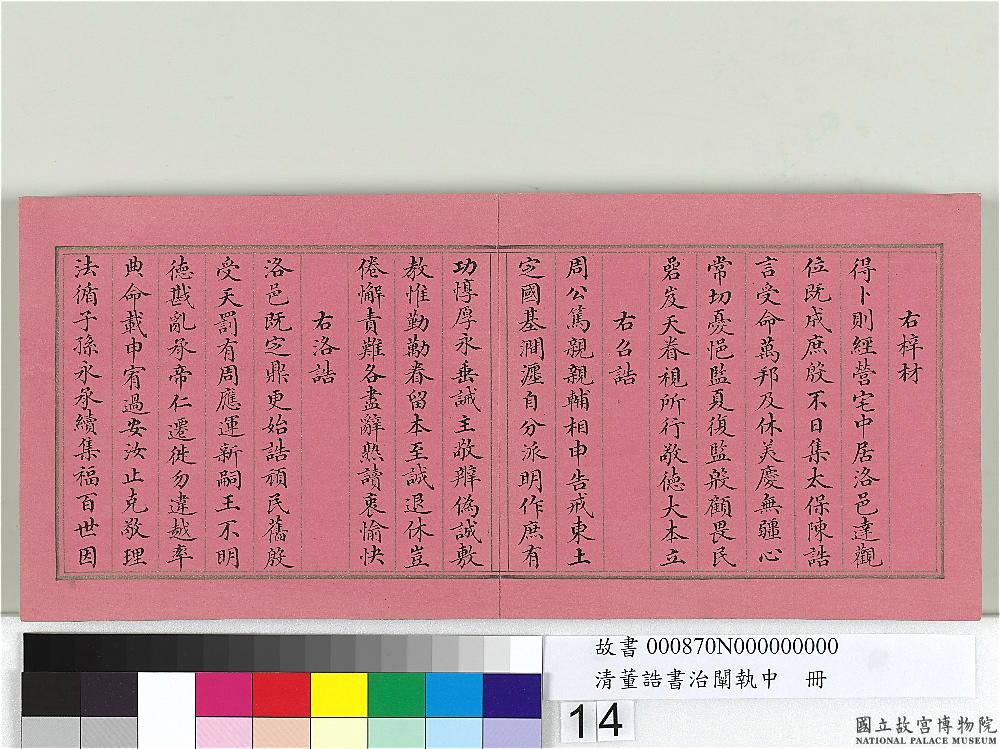 右梓材
得卜則經營宅中居洛邑達觀
位既成庶殷不日集太保陳誥
言受命萬邦及休美慶無疆心
常切憂悒監夏復監殷顧畏民
碞岌天眷視所行敬德大本立
右召誥
周公篤親親輔相申告戒東土
定國基澗瀍自分派明作庶有
功惇厚永垂誡主敬辨偽誠敷
教惟勤勱眷留本至誠退休豈
倦懈責難各盡辭熟讀衷愉快
右洛誥
洛邑既定鼎更始誥頑民舊殷
受天罰有周應運新嗣王不明
德戡亂承帝仁遷徙勿違越率
典命載申宥過安汝止克敬理
法循子孫永承續集福百世因
故書 000870N000000000
清董誥書治闡執中 冊
14
國立故宮博物院
NATIONAL PALACE MUSEUM